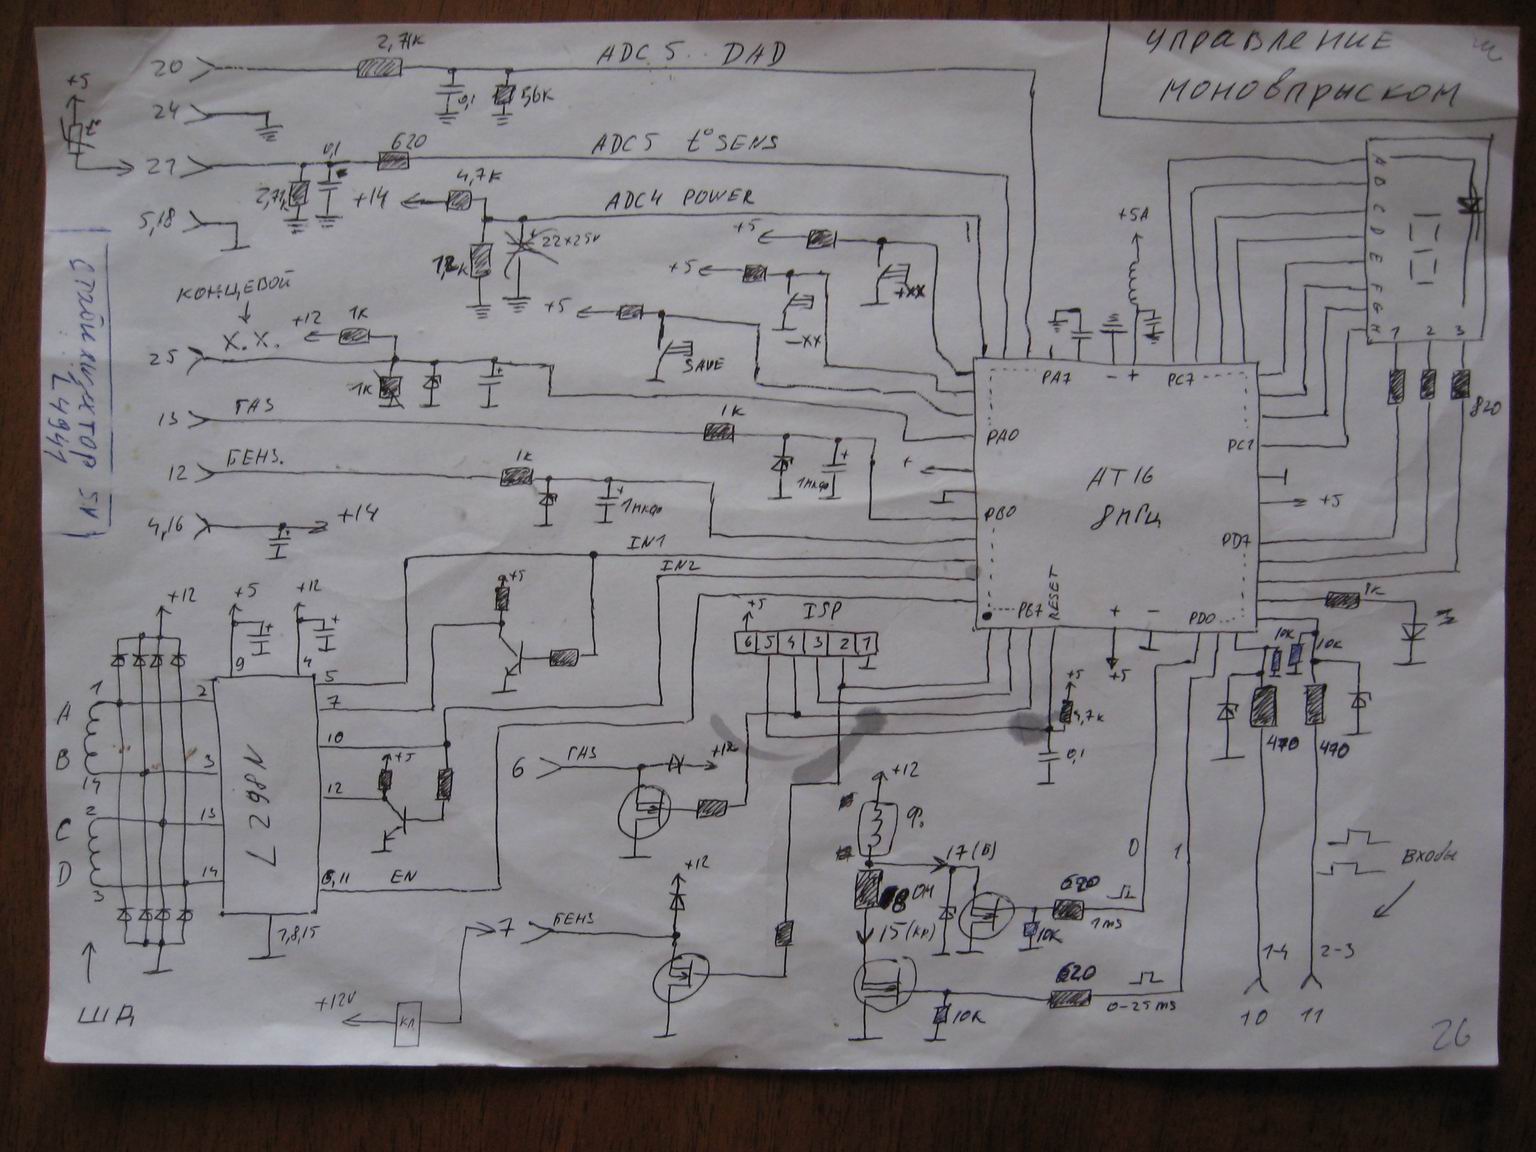 УПРАВЛЕНИЕ
МОНОВПРЫСКОМ
20
2,71к
ADC5.. DAD
+5
0,1
5,6к
24
t°
21
0,1
620
ADC5 t° SENS
2,71к
+14
4,7к
ADC4 POWER
22×25V
1,2к
5,18
+5
+5
+5
+XX
-XX
SAVE
+5A
A
B
C
D
E
F
G
H
1
2
3
820
КОНЦЕВОЙ
X.X.
+12
1К
25
1К
13
ГАЗ
1К
1мкф
12
БЕНЗ.
1К
1мкф
4,16
+14
PA7
- +
PC7
PA0
PC1
+
AT16
8МГЦ
+5
PB0
PD7
PB7
RESET
+ -
PD0
+5
1К
10К
10К
470
470
СТАБИЛИЗАТОР 5V
L4941
IN1
IN2
ISP
+5
6 5 4 3 2 1
+5
4,7к
0,1
+12
+5
+12
9
4
5
7
10
12
6,11
EN
+5
+5
1
2
A
B
3
14
2
C
13
D
14
3
N8627
7,8,15
ШД
6
ГАЗ
+12
+12
7
БЕНЗ
+12V
КЛ
+12
Ф.
17(Б)
8 ОМ
15(КР)
620
1ms
10К
620
0-25ms
10К
0
1
ВХОДЫ
1-4
2-3
10
11
26